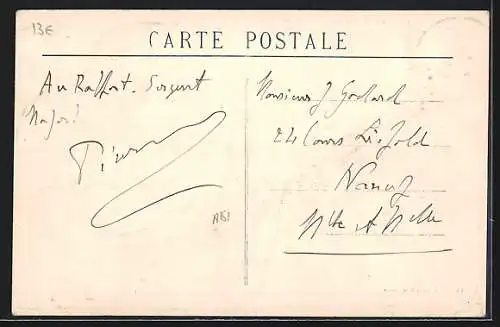 13€
CARTE POSTALE
Au Rapport. Sergent
Major!
Monsieur J Godard
24 Cours Léopold
Nancy
Mthe et Mlle